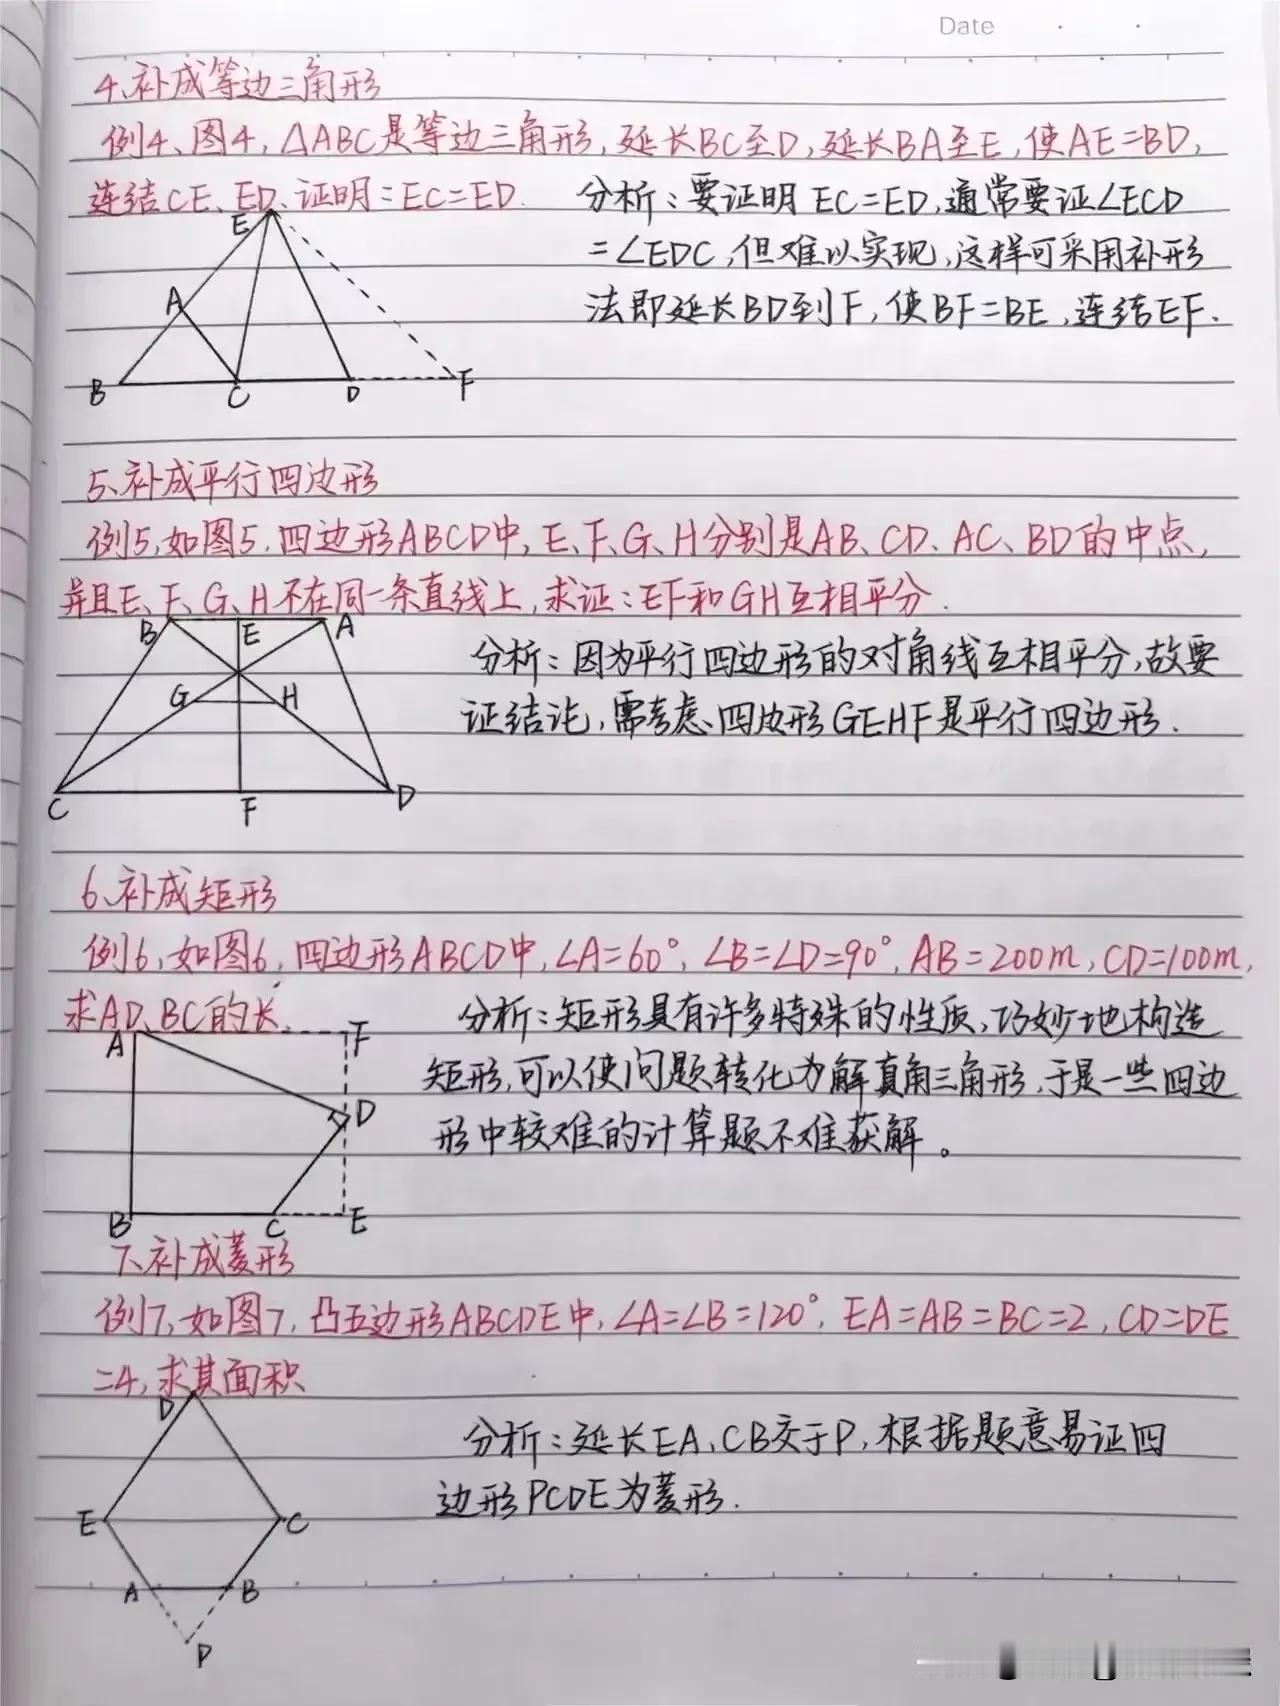 Date
4、补成等边三角形
例4、图4，△ABC是等边三角形，延长BC至D，延长BA至E，使AE=BD，
连结CE、ED、证明：EC=ED.
分析：要证明EC=ED，通常要证∠ECD
=∠EDC，但难以实现，这样可采用补形
法即延长BD到F，使BF=BE，连结EF.
E
A
B C D F
5、补成平行四边形
例5，如图5，四边形ABCD中，E、F、G、H分别是AB、CD、AC、BD的中点，
并且E、F、G、H不在同一条直线上，求证：EF和GH互相平分.
B E A
分析：因为平行四边形的对角线互相平分，故要
证结论，需考虑四边形GEHF是平行四边形.
G H
C F D
6、补成矩形
例6，如图6，四边形ABCD中，∠A=60°，∠B=∠D=90°，AB=200m，CD=100m，
求AD、BC的长.
分析：矩形具有许多特殊的性质，巧妙地构造
矩形，可以使问题转化为解直角三角形，于是一些四边
形中较难的计算题不难获解。
A F
D
B C E
7、补成菱形
例7，如图7，凸五边形ABCDE中，∠A=∠B=120°，EA=AB=BC=2，CD=DE
=4，求其面积
分析：延长EA、CB交于P，根据题意易证四
边形PCDE为菱形.
D
E C
A B
P